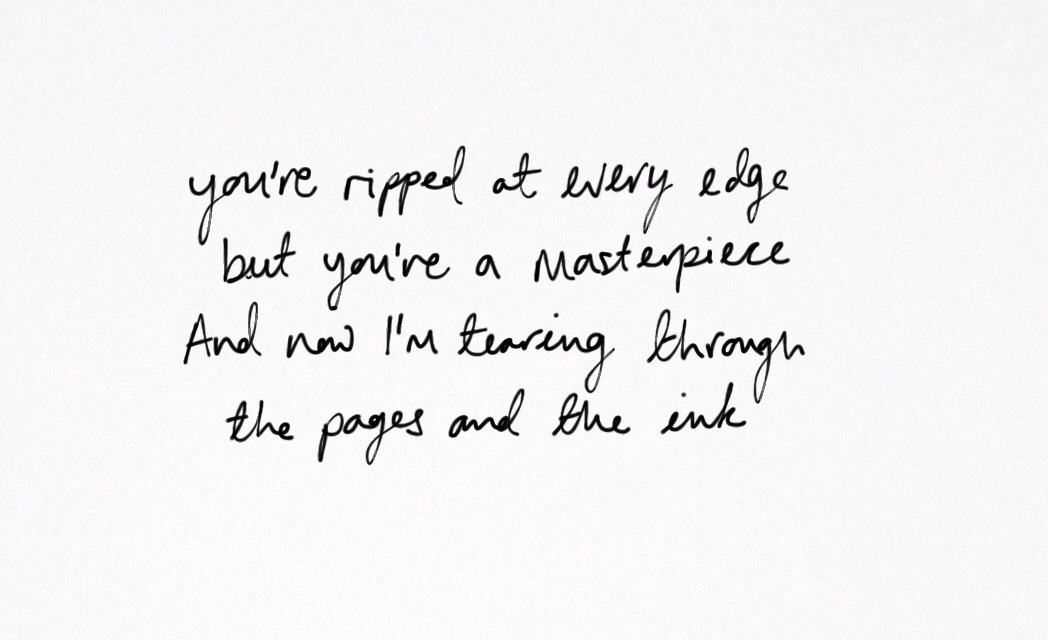 you're ripped at every edge
but you're a Masterpiece
And now I'm tearing through
the pages and the ink